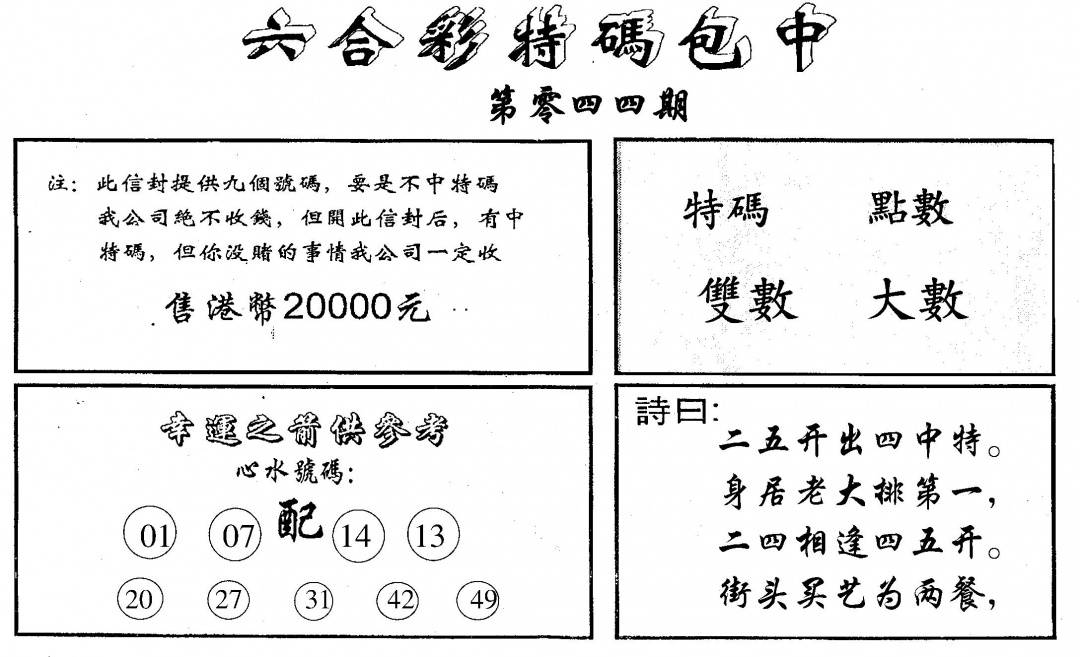 六合彩特碼包中
第零四四期
注：此信封提供九個號碼，要是不中特碼
我公司絶不收錢，但開此信封后，有中
特碼，但你没賭的事情我公司一定收
售港幣20000元
特碼 點數
雙數 大數
幸運之箭供參考
心水號碼：
01 07 配 14 13
20 27 31 42 49
詩曰：
二五开出四中特。
身居老大排第一，
二四相逢四五开。
街头买艺为两餐，